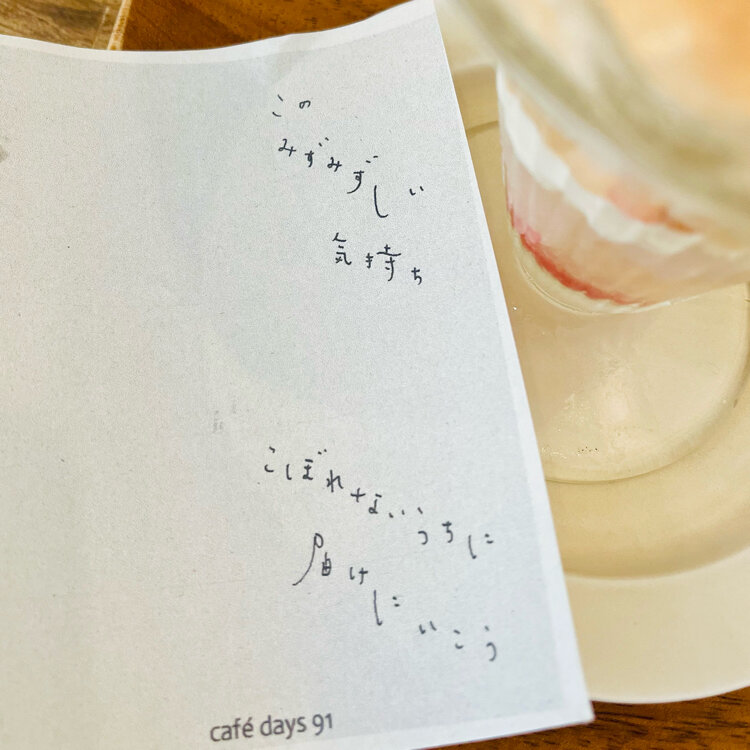 この
みずみずしい
気持ち
こぼれないうちに
届けにいこう
café days 91